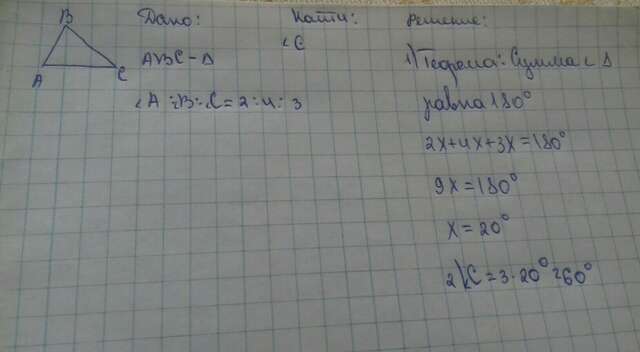 B
A
C
Дано:
ABC – Δ
∠A:∠B:∠C = 2:4:3
Найти:
∠C
Решение:
1) Теорема: Сумма ∠ Δ
равна 180°
2x+4x+3x=180°
9x=180°
x=20°
2) ∠C=3·20°=60°